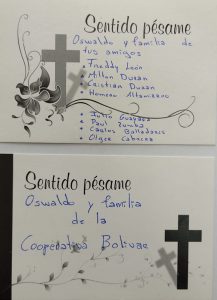 Sentido pésame
Oswaldo y familia de
tus amigos
• Freddy León
• Millan Duran
• Cristian Duran
• Homero Altamirano
• Julio Guayaca
• Paul Zumba
• Carlos Balladares
• Olger Cabrera
Sentido pésame
Oswaldo y familia
de la
Cooperativa Bolivar